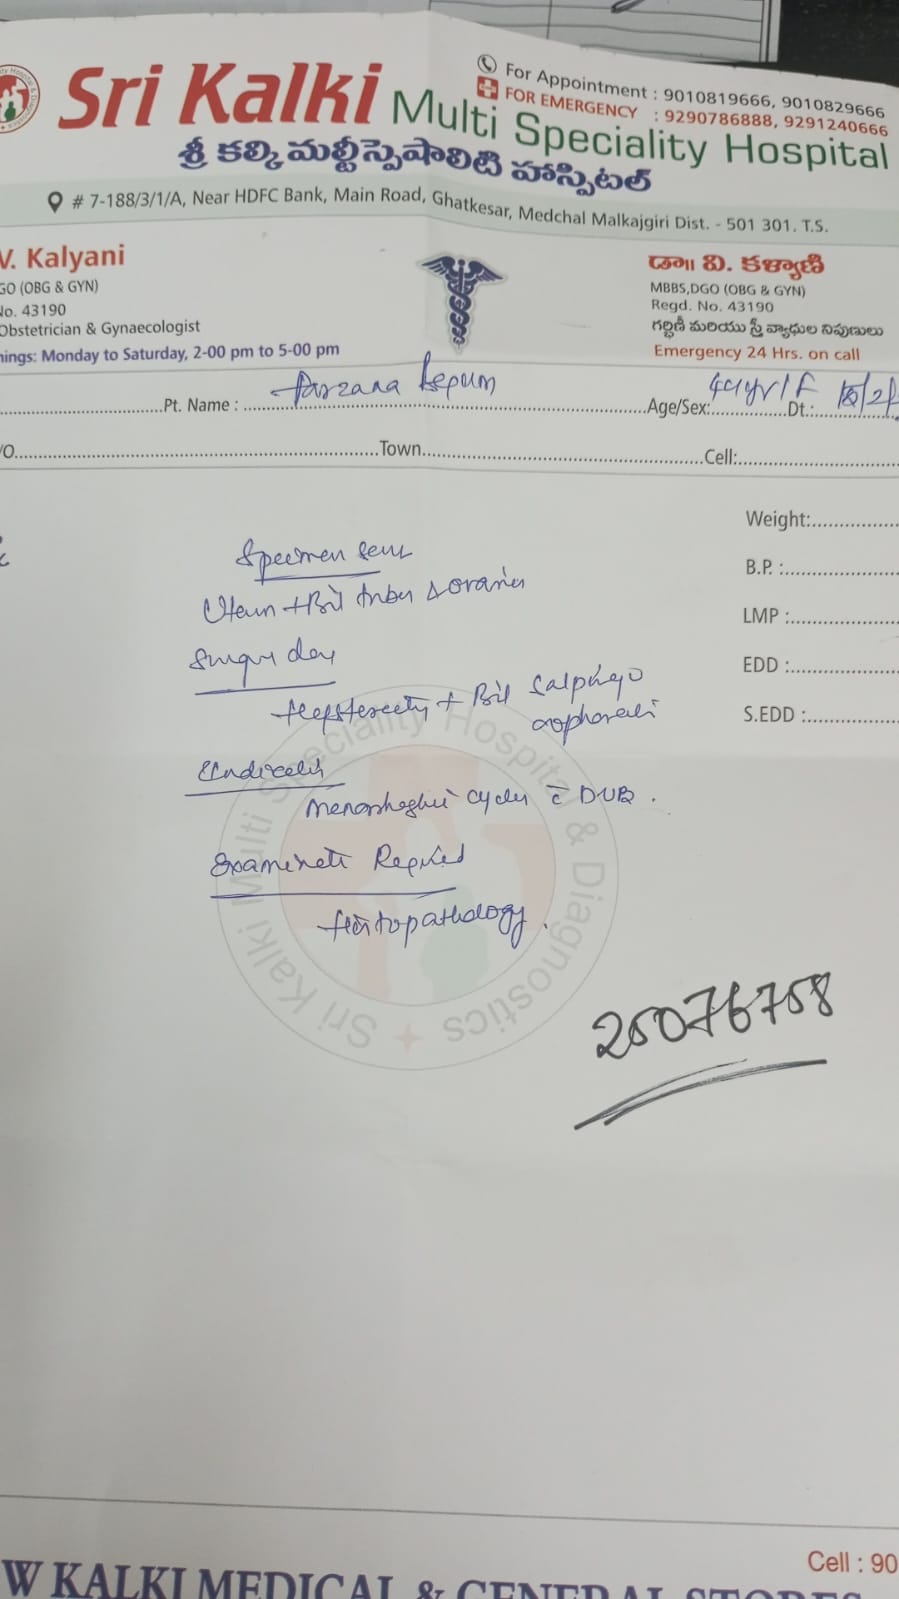 Sri Kalki Multi Speciality Hospital
For Appointment : 9010819666, 9010829666
FOR EMERGENCY : 9290786888, 9291240666
శ్రీ కల్కి మల్టీస్పెషాలిటి హాస్పిటల్
# 7-188/3/1/A, Near HDFC Bank, Main Road, Ghatkesar, Medchal Malkajgiri Dist. - 501 301. T.S.
V. Kalyani
GO (OBG & GYN)
No. 43190
Obstetrician & Gynaecologist
nings: Monday to Saturday, 2-00 pm to 5-00 pm
డా॥ వి. కళ్యాణి
MBBS,DGO (OBG & GYN)
Regd. No. 43190
గర్భిణీ మరియు స్త్రీ వ్యాధుల నిపుణులు
Emergency 24 Hrs. on call
Pt. Name : Farzana Age/Sex: 44yr/F Dt.:
/O. Town Cell:
Weight:
B.P. :
LMP :
EDD :
S.EDD :
Specimen sent
+ Bil
+ Bil Salphigo
cycles c̄ DUB.
Required
Histopathology.
25076758
Sri Kalki Multi Speciality Hospital & Diagnostics
Cell : 90
W KALKI MEDICAL & GENERAL STORES